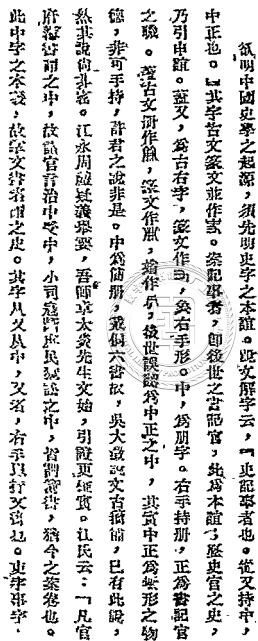 欲明中國史學之起源，須先明史字之本誼。說文解字云，『史記事者也。從又持中，
中正也。』其字古文篆文並作𠭏。案記事者，即後世之書記官，此爲本誼；歷史官之史，
乃引申誼。蓋又，爲古右字，篆文作，象右手形。中，爲册字。右手持册，正爲書記官
之職。蓋古文册作，篆文作，省作，後世誤譌爲中正之中，其實中正爲無形之物
德，非可手持，許君之說非是。中爲簡册，戴侗六書故，吳大澂說文古籀補，已有此說，
然其說尚非塙。江永周禮疑義舉要，吾師章太炎先生文始，引證更塙實。江氏云：『凡官
府簿書謂之中，故諸官言治中受中，小司寇斷庶民獄訟之中，皆謂簿書，猶今之案卷也。
此中字之本義，故掌文書者謂之史。其字从又从中，又者，右手以持簿書也。吏字事字，